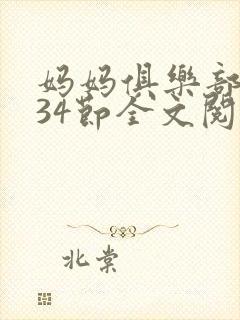 妈妈俱樂部
34節全文閱
北棠